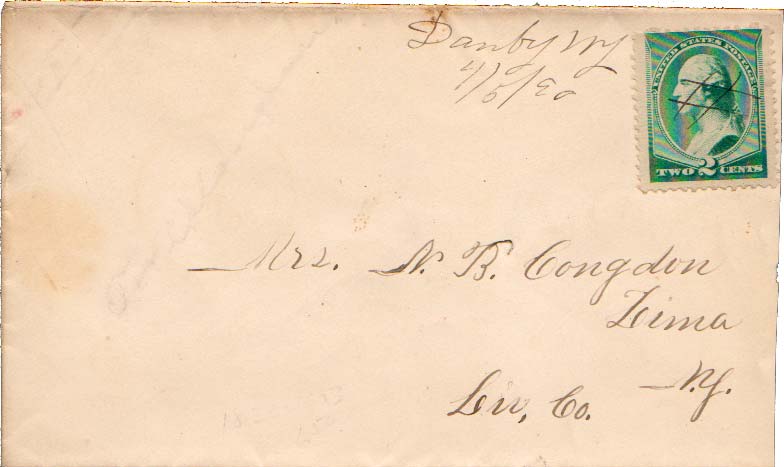 Danby NY
UNITED STATES POSTAGE
TWO 2 CENTS
Mrs. N. B. Congdon
Lima
N.Y.
Liv. Co.